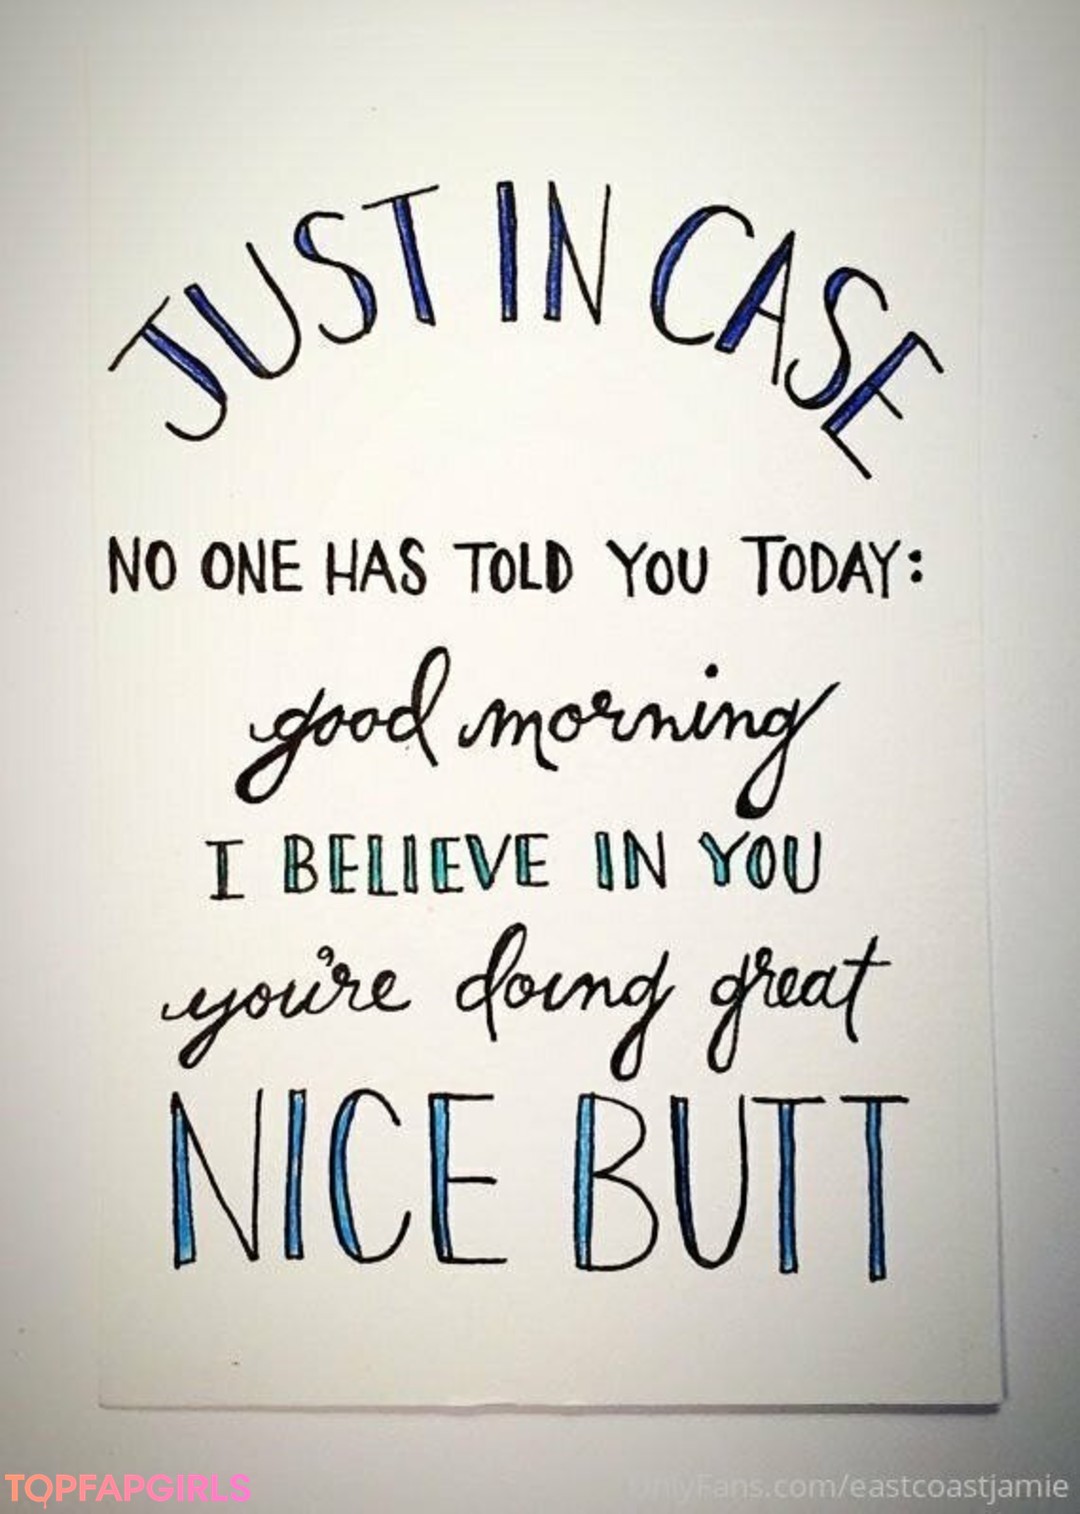 JUST IN CASE
NO ONE HAS TOLD YOU TODAY:
good morning
I BELIEVE IN YOU
you're doing great
NICE BUTT
TOPFAPGIRLS
OnlyFans.com/eastcoastjamie